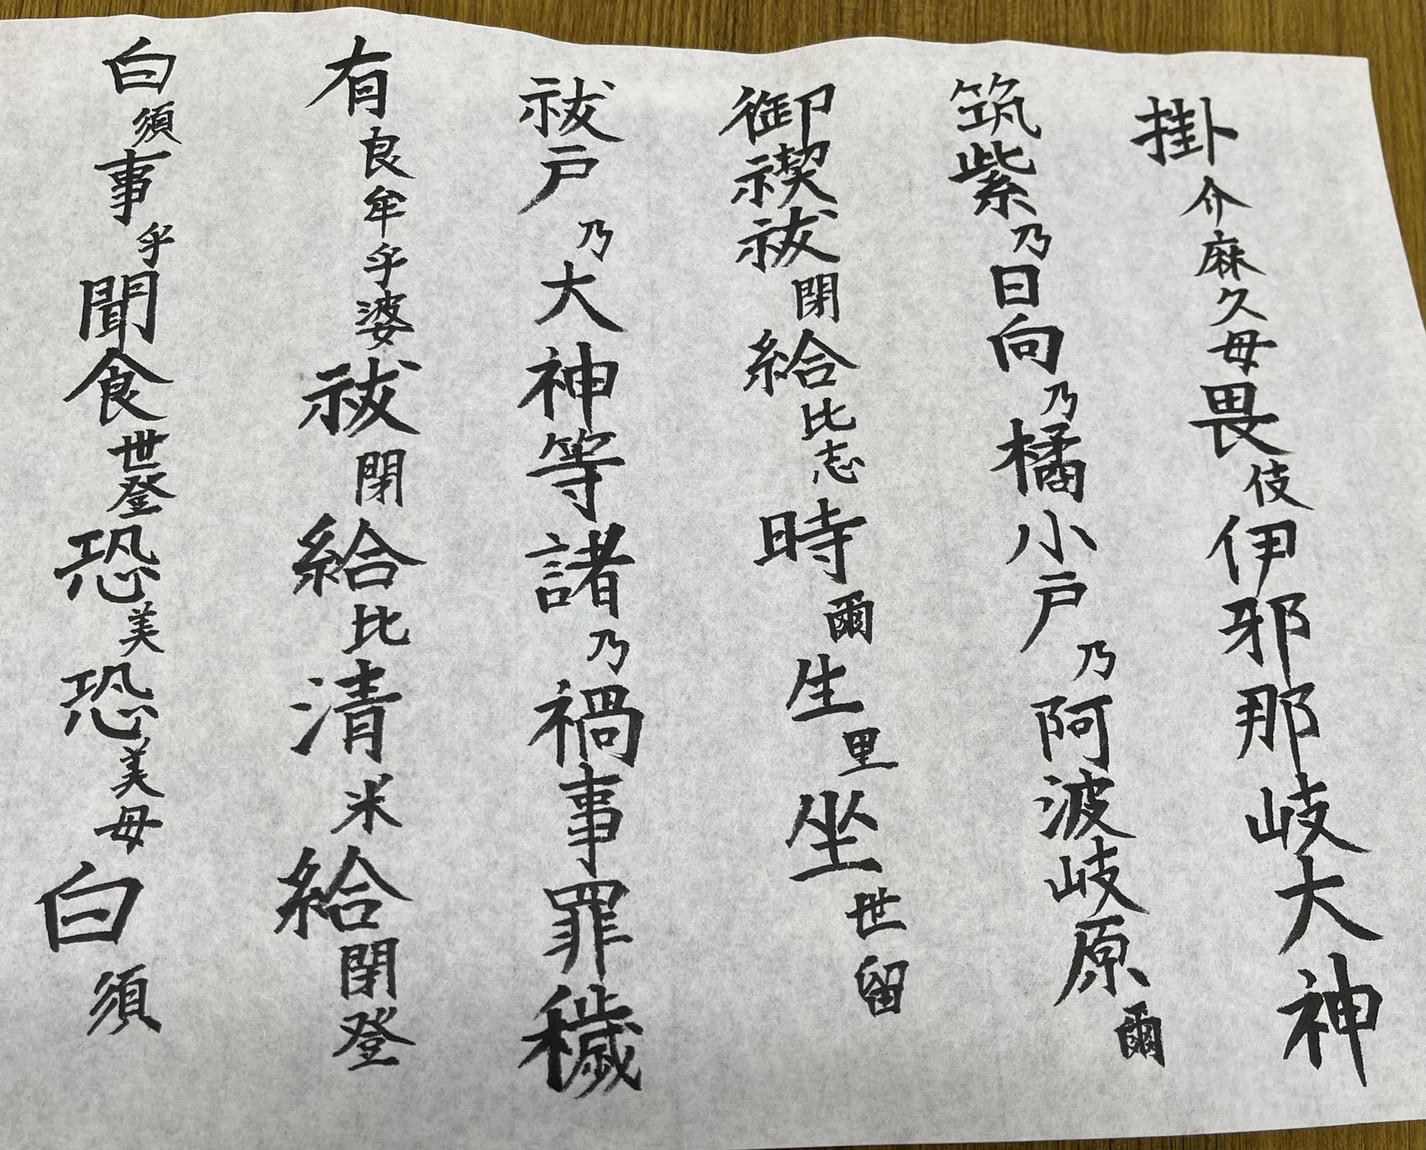 掛介麻久母畏伎伊邪那岐大神
筑紫乃日向乃橘小戸乃阿波岐原爾
御禊祓閉給比志時爾生里坐世留
祓戸乃大神等諸乃禍事罪穢
有良牟乎婆祓閉給比清米給閉登
白須事乎聞食世登恐美恐美母白須